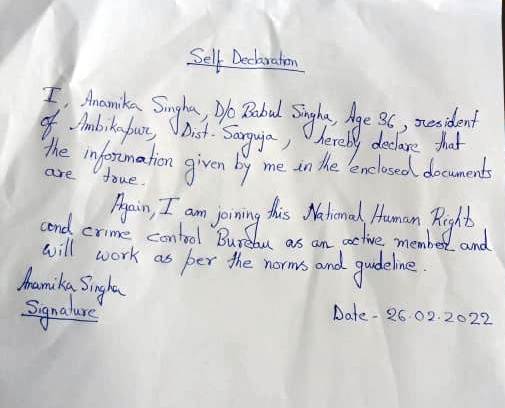 Self Declaration
I, Anamika Singha, D/o Babul Singha, Age 36, resident
of Ambikapur, Dist- Sarguja, hereby declare that
the information given by me in the enclosed documents
are true.
Again, I am joining this National Human Right
and crime control Bureau as an active member and
will work as per the norms and guideline.
Anamika Singha
Signature
Date - 26.02.2022